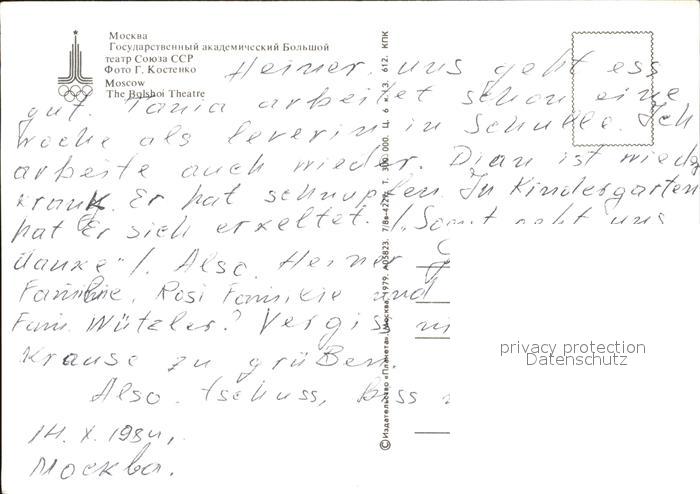 Москва
Государственный академический Большой
театр Союза ССР
Фото Г. Костенко
Moscow
The Bolshoi Theatre
Heiner, uns geht ess
gut. Tania arbeitet schon eine
woche als leverin in Schulle. Ich
arbeite auch wieder. Dian ist wiede
krank. Er hat schnupfen. In Kindergarten
hat er sich erkeltet. /. Sonst geht uns
danke"/. Also. Heiner
Familie, Rosi Familie und
Fam. Wützler? Vergiss
Krause zu grüßen.
Also. tschuss, biss
14. X. 1984,
Москва.
©Издательство «Планета». Москва, 1979. А05823. 7/8в-4227. Т. 300 000. Ц. 6 к. З. 612. КПК
privacy protection
Datenschutz